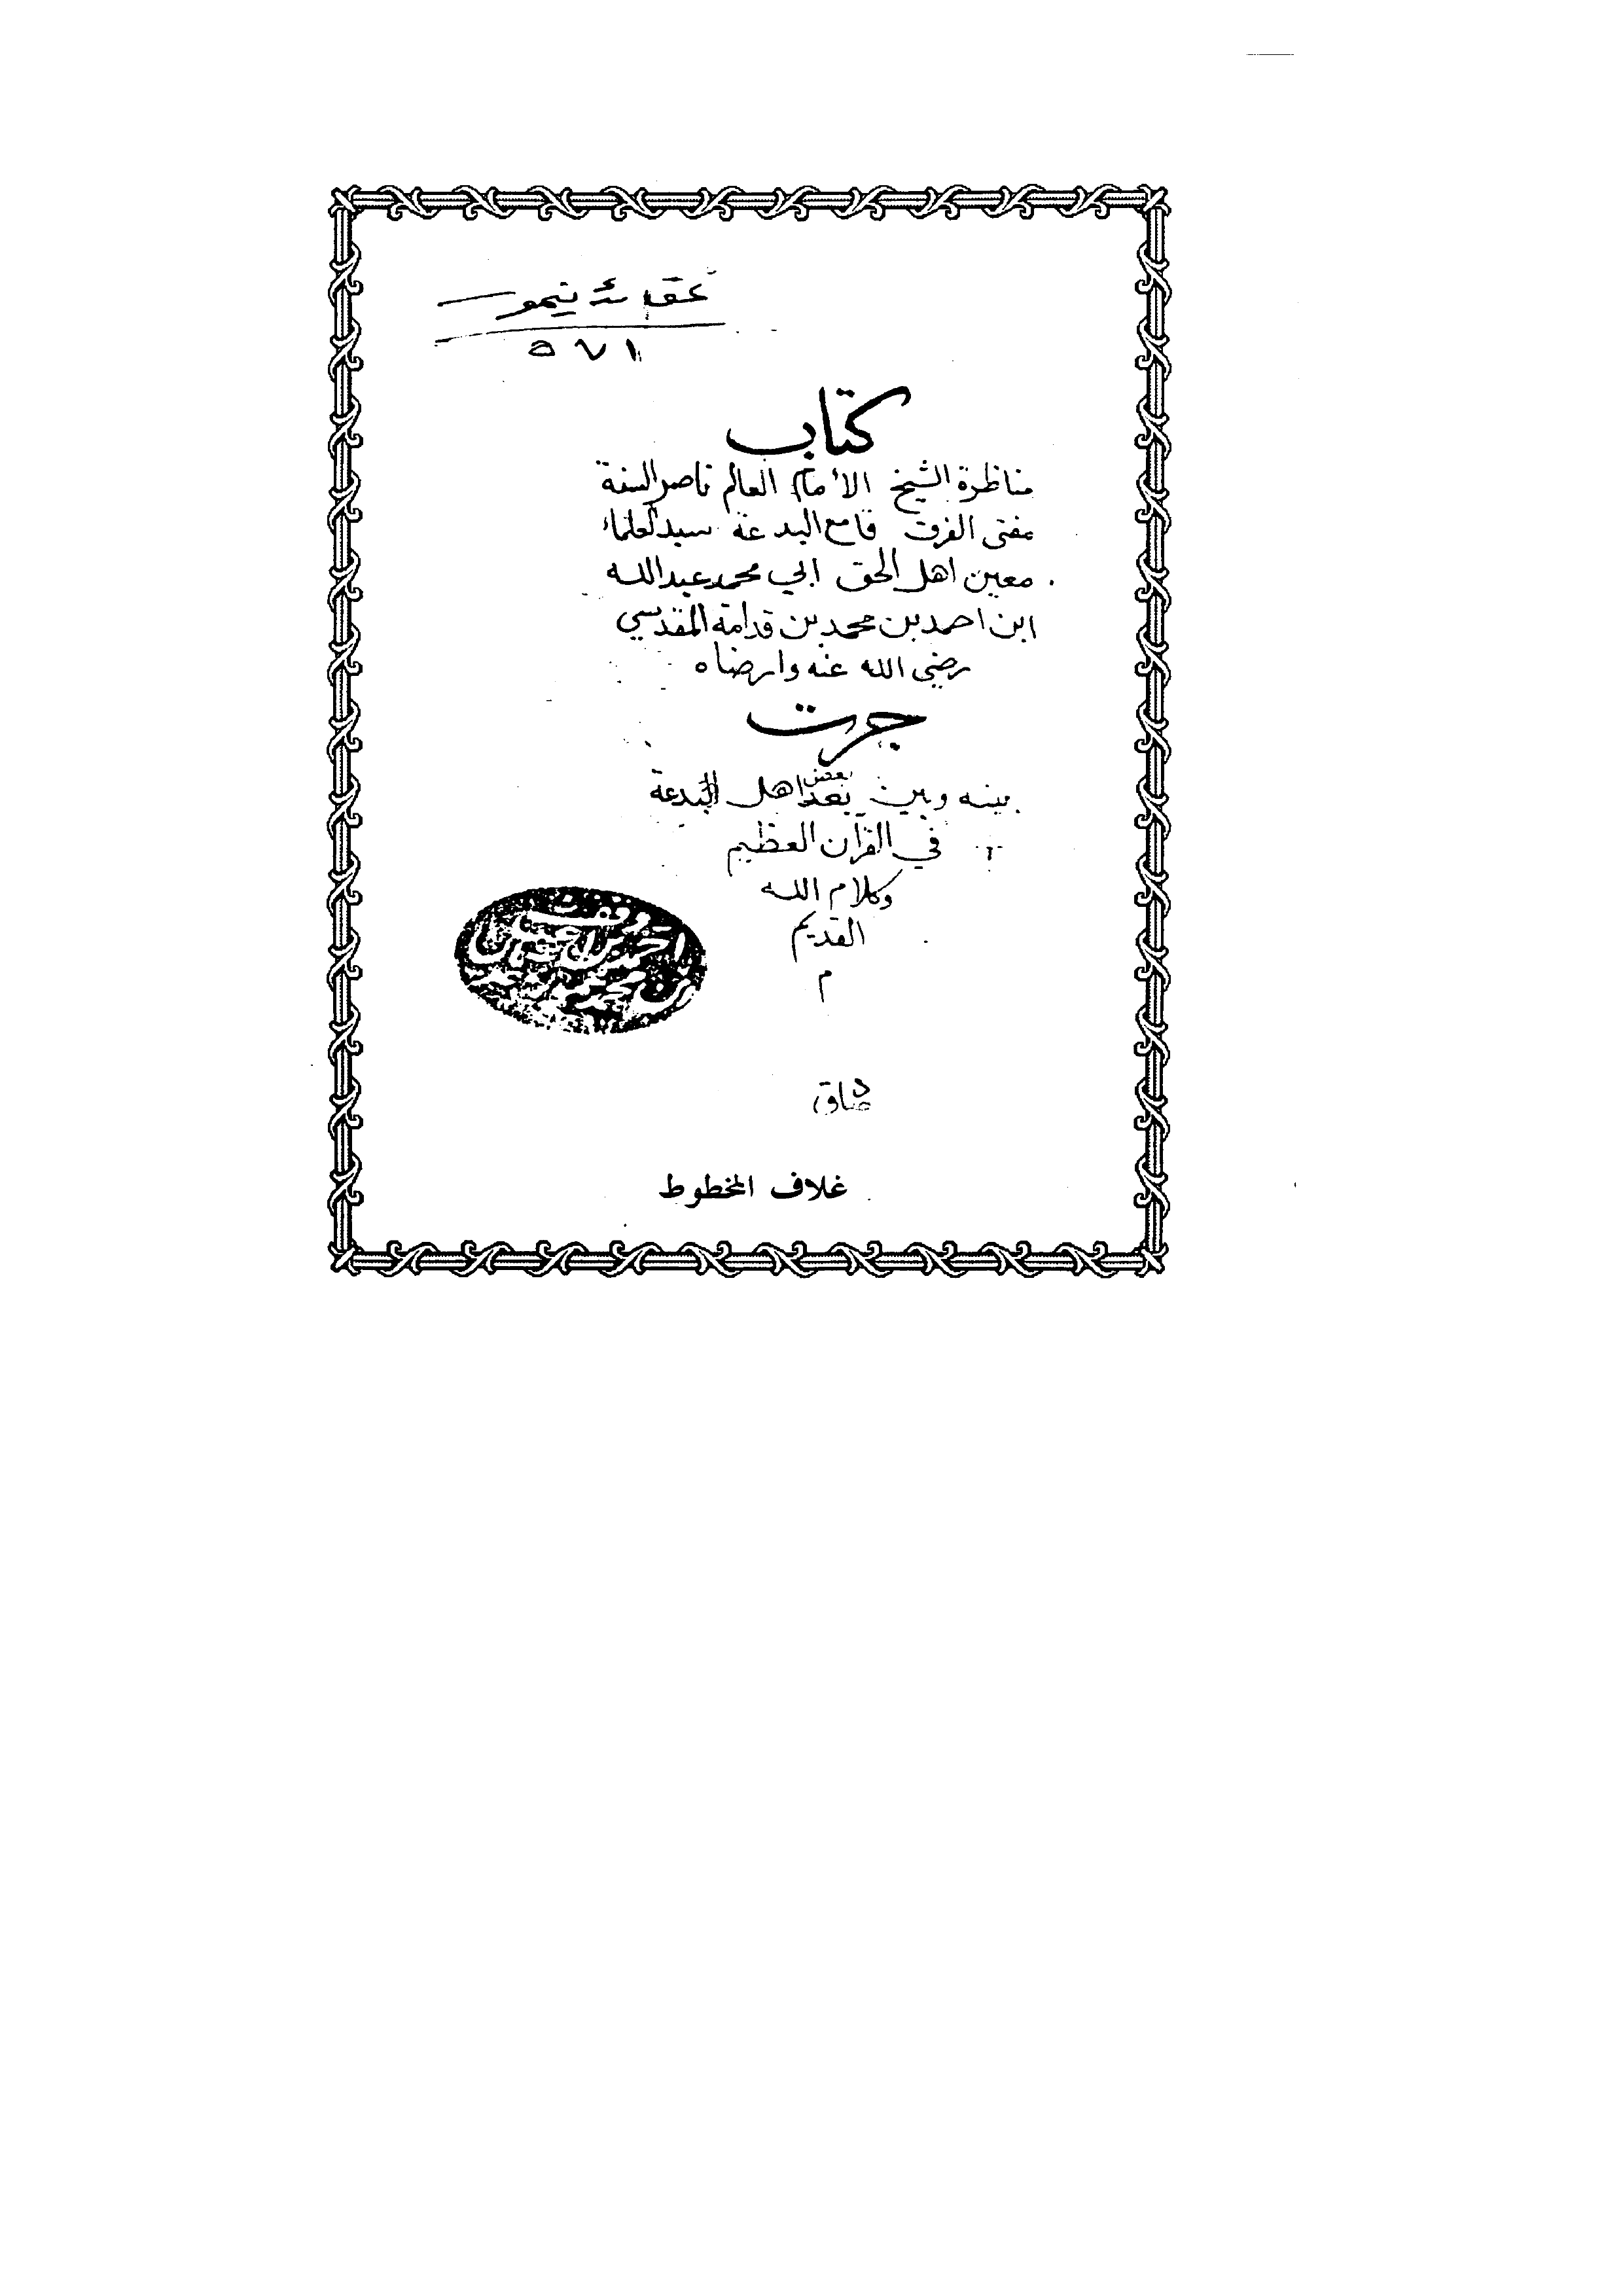 عقائد تيمور
٥٧١
كتاب
مناظرة الشيخ الأمام العالم ناصر السنة
مفتى الفرق قامع البدعة سيد العلماء
معين اهل الحق ابي محمد عبد الله
ابن احمد بن محمد بن قدامة المقدسي
رضي الله عنه وارضاه
جرت
بينه وبين بعض اهل البدعة
في القرآن العظيم
وكلام الله
القديم
م
غلاف المخطوط